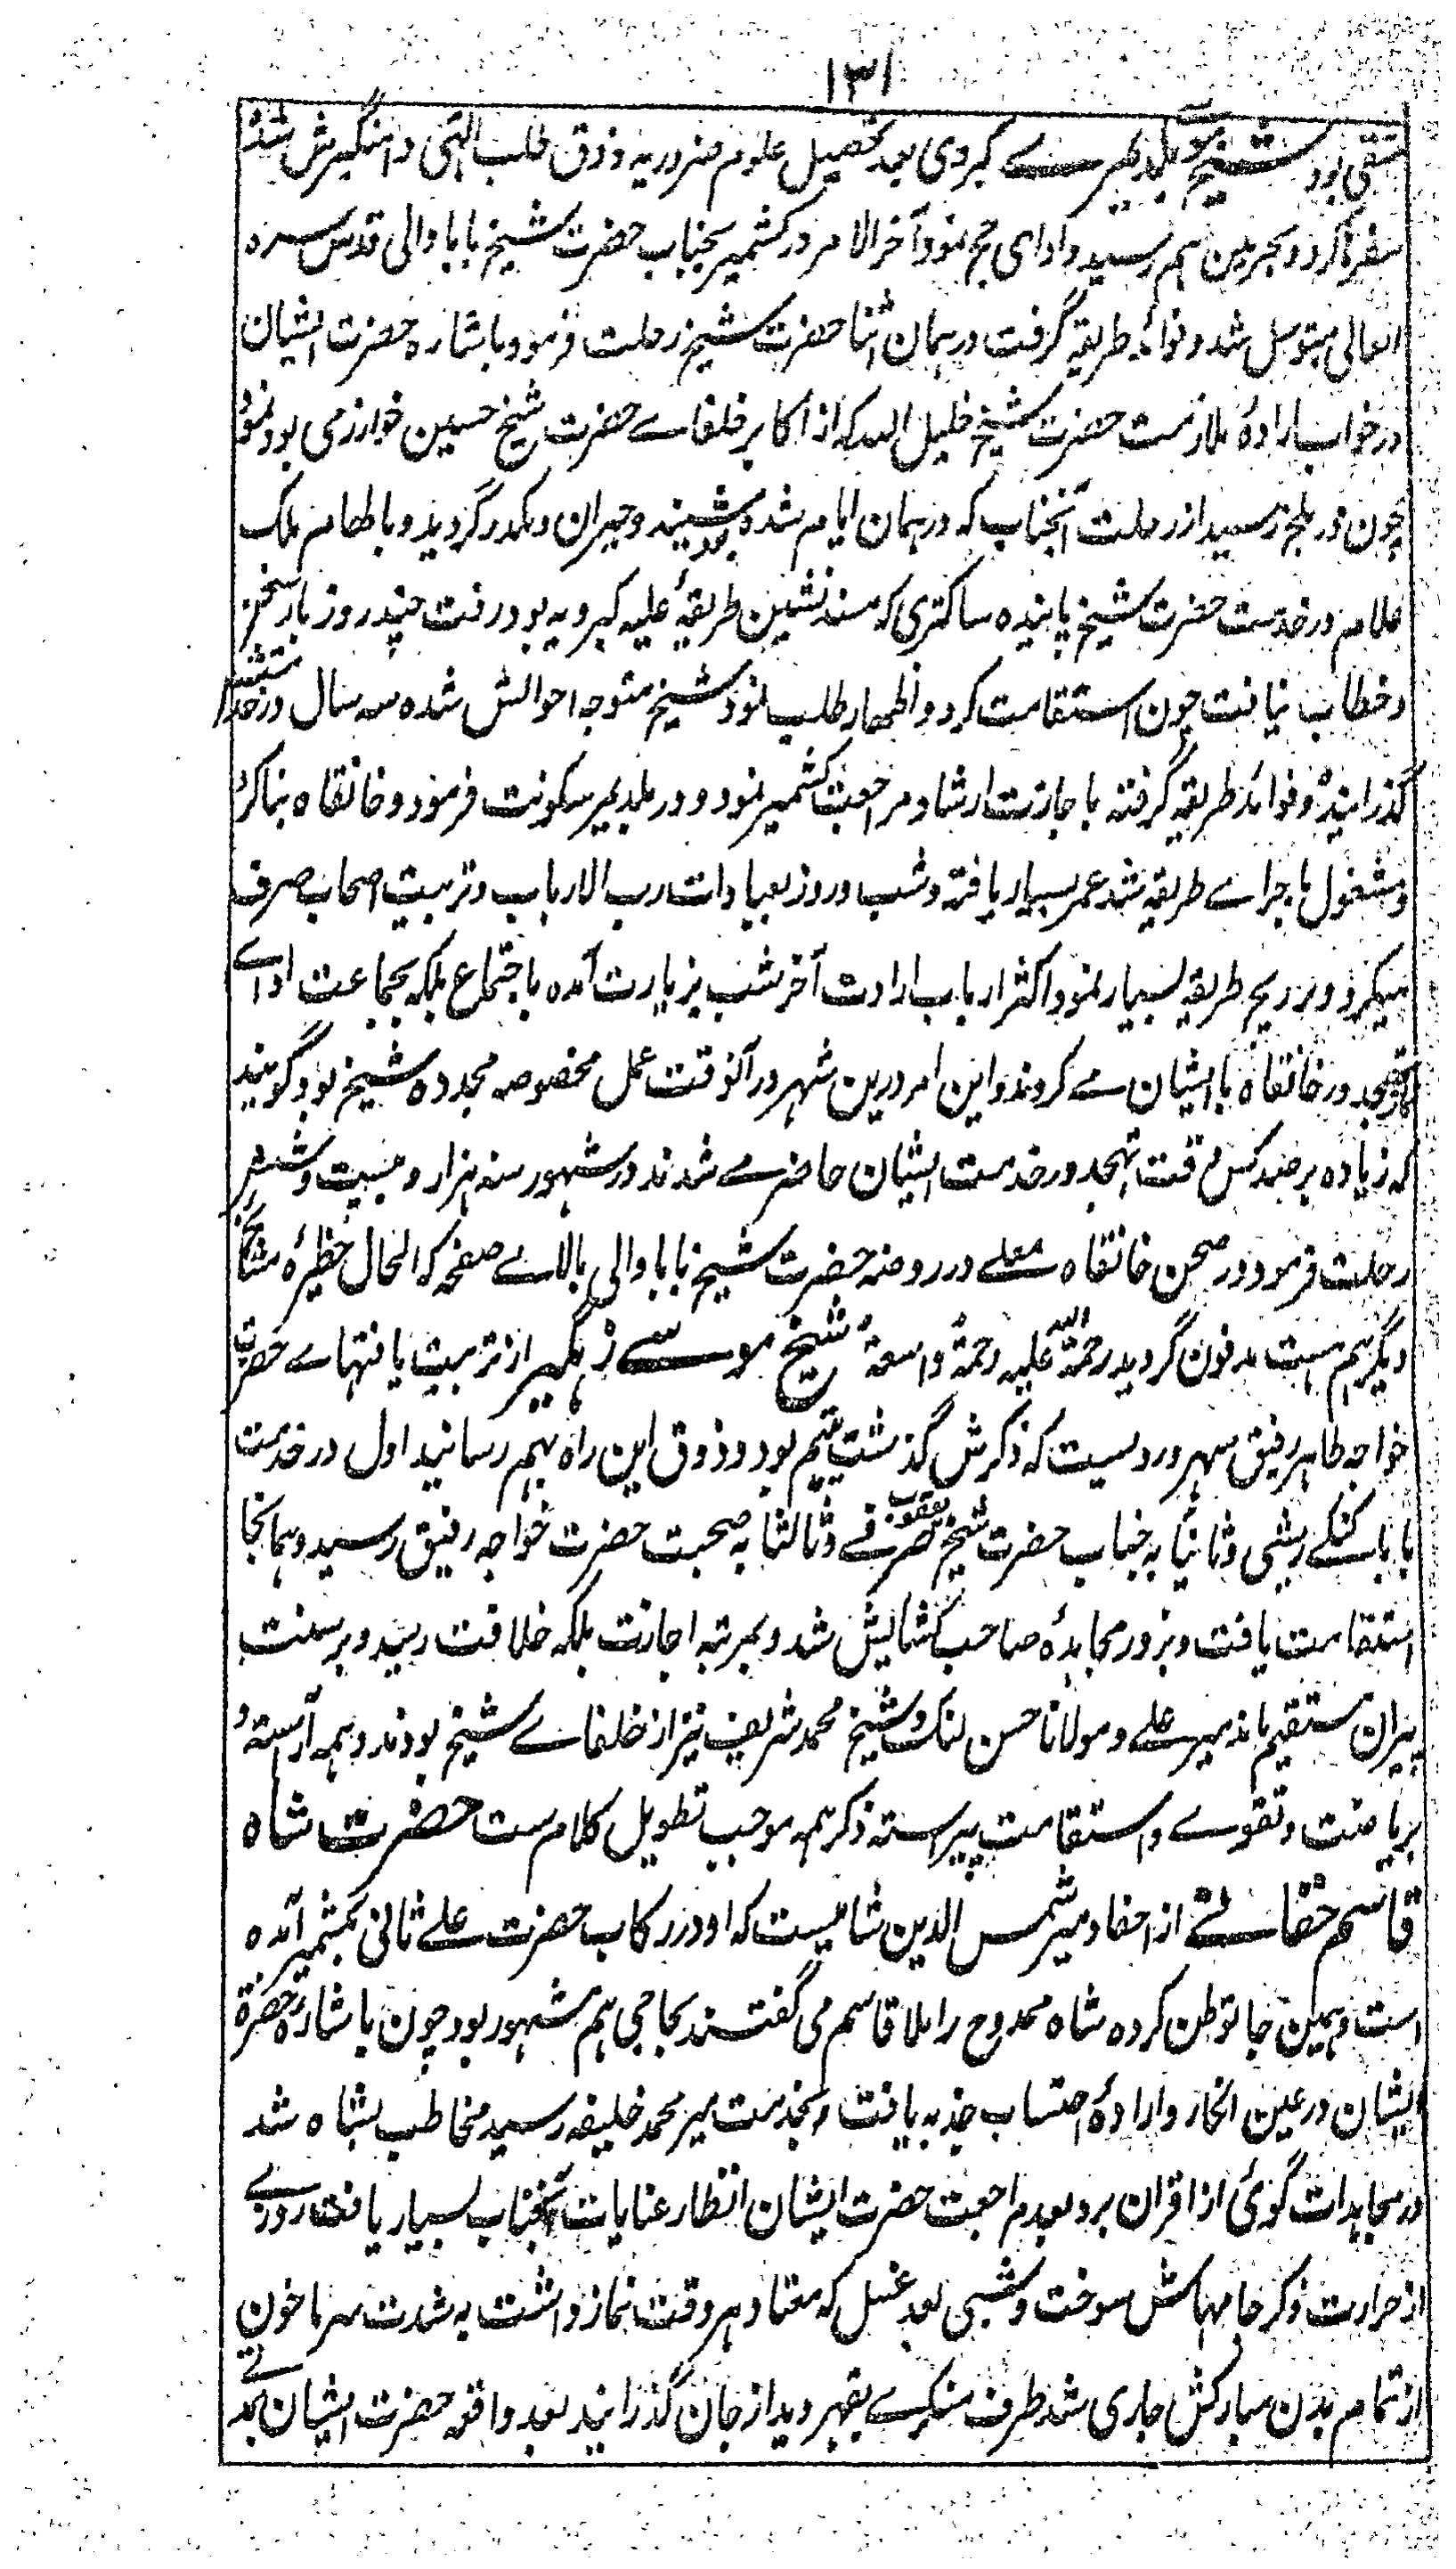 ۱۳۱
متقی بود شیخ موسی بلدیمیرے کبروی بعد تحصیل علوم ضروریه و ذوق طلب الٰهی دامنگیرش شد
سفرها کرد و بحرمین هم رسید و ادای حج نمود آخر الامر در کشمیر بجناب حضرت شیخ بابا والی قدس سره
العالی متوسل شد و فوائد طریقه گرفت در همان اثنا حضرت شیخ رحلت فرمود و باشاره حضرت ایشان
در خواب ارادۀ ملازمت حضرت شیخ خلیل الله که از اکابر خلفاے حضرت شیخ حسین خوارزمی بود نمود
چون در بلخ رسید از رحلت آنجناب که در همان ایام شده بود شنیده و حیران و مکدر گردید و باطهام ملک
علام در خدمت حضرت شیخ پاینده ساکتری که مسند نشین طریقۀ علیه کبرویه بود رفت چند روز بار سخن
و خطاب نیافت چون استقامت کرد و اظهار طلب نمود شیخ متوجه احوالش شده سه سال در خدمتش
گذرانیده و فوائد طریقه گرفته باجازت ارشاد مراجعت کشمیر نمود و در بلدیمیر سکونت فرمود و خانقاه بنا کرد
و مشغول باجراے طریقه شد عمر بسیار یافته و شب و روز بعبادات رب الارباب و تربیت اصحاب صرف
میکرد و ترویج طریقه بسیار نمود اکثر ارباب ارادت آخر شب بزیارت آمده باجتماع بلکه بجماعت اداے
نماز تهجد در خانقاه با ایشان مے کردند و این امر درین شهر در آنوقت عمل مخصوصه مجدده شیخ بود گویند
که زیاده بر صد کس وقت تهجد در خدمت ایشان حاضر مے شدند در شهور سنه هزار و بیست و شش
رحلت فرمود در صحن خانقاه معلے در روضه حضرت شیخ بابا والی بالاے صفحه که الحال حظیرۀ مشائخ
دیگر هم هست مدفون گردید رحمة الله علیه رحمةً واسعةً شیخ موسے زهگیر از تربیت یافتهاے حضرت
خواجه طاهر رفیق سهروردیست که ذکرش گذشت یتیم بود و ذوق این راه بهم رسانید اول در خدمت
بابا سنگے ریشی و ثانیاً به جناب حضرت شیخ یعقوب صرفے و ثالثا به صحبت حضرت خواجه رفیق رسید و همانجا
استقامت یافت و بزور مجاهدۀ صاحب کشایش شد و بمرتبه اجازت بلکه خلافت رسید و بر سنت
پیران مستقیم ماند میر علے و مولانا حسن لنگ و شیخ محمد شریف نیز از خلفاے شیخ بودند و همه آراسته و
بریاضت و تقوے و استقامت پیراسته ذکر همه موجب تطویل کلام ست حضرت شاه
قاسم حقانے از احفاد میر شمس الدین شامیست که او در رکاب حضرت علے ثانی بکشمیر آمده
است و همین جا توطن کرده شاه ممدوح را ملا قاسم می گفتند بحاجی هم مشهور بود چون باشاره حضرة
ایشان در عین انکار و ارادۀ احتساب جذبه یافت و بخدمت میر محمد خلیفه رسید مخاطب بشاه شد
در مجاهدات گوئ از اقران برد بعد مراجعت حضرت ایشان انظار عنایات آنجناب بسیار یافت روزے
از حرارت ذکر جامهاش سوخت و شبی بعد غسل که معتاد هر وقت نماز داشت به شدت سرما خون
از تمام بدن مبارکش جاری شد طرف منکرے بقهر دید از جان گذرانید بعد واقعه حضرت ایشان بخدمتے